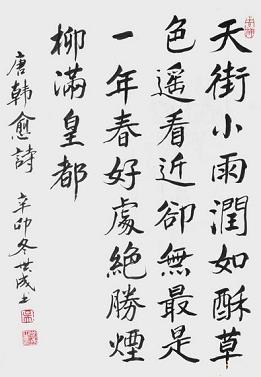 天街小雨潤如酥草
色遥看近卻無最是
一年春好處絕勝煙
柳滿皇都
唐韓愈詩
辛卯冬世成書